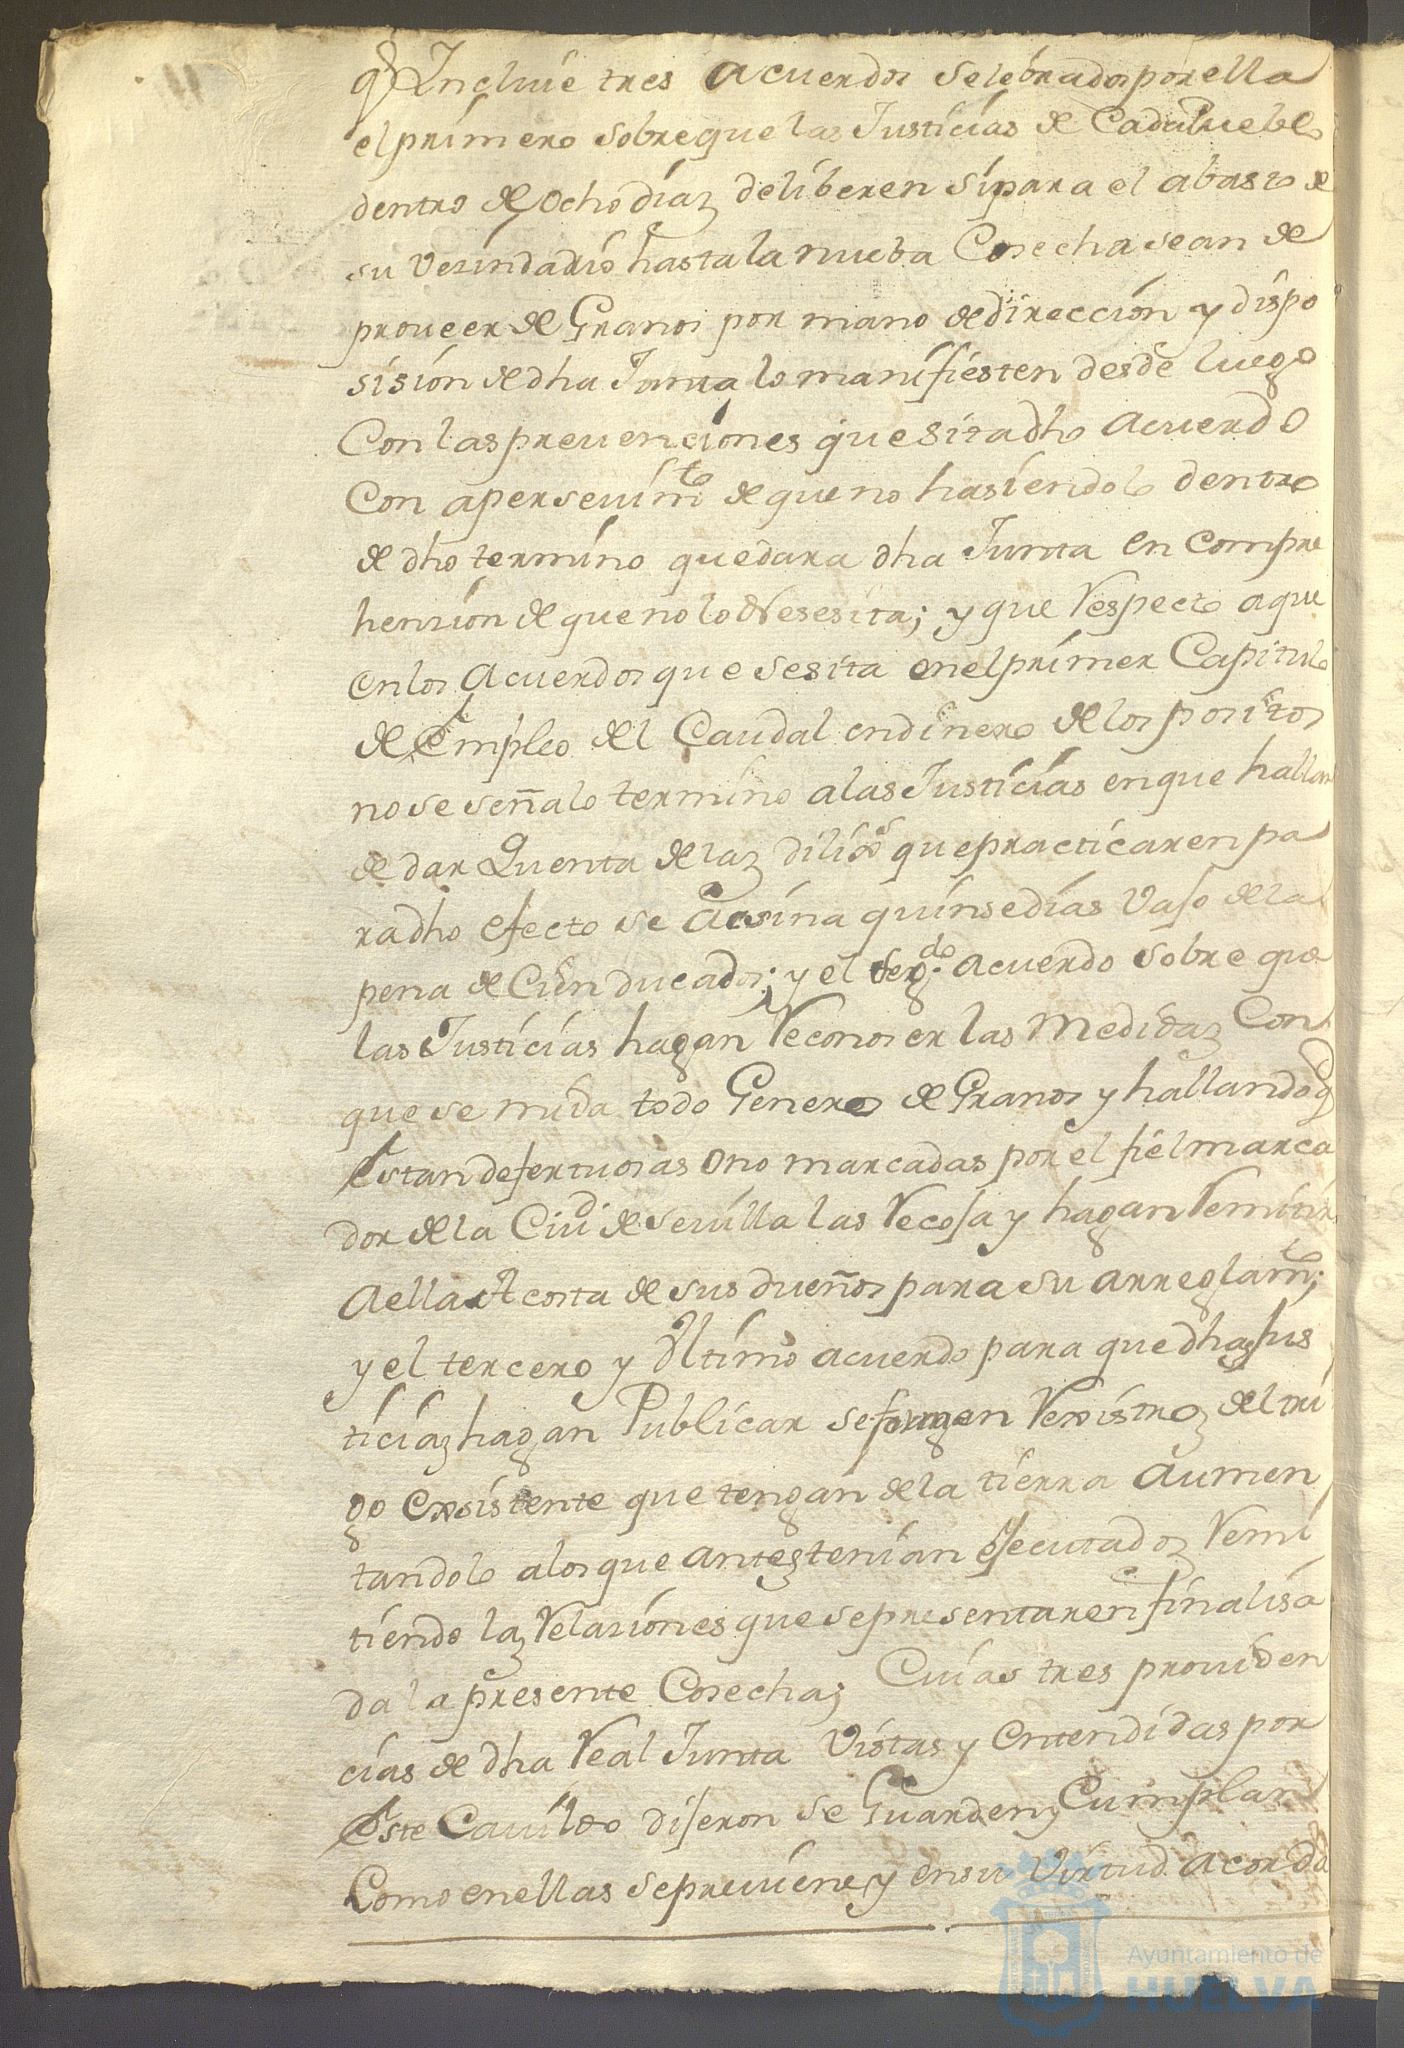 q.e Incluie tres acuerdos selebrados por ella
el primero sobre que las Justicias de Cada Pueblo
dentro de ocho diaz deliberen si para el abasto de
su Vesindario hasta la nueba Cosecha se an de
proveer de Granos por mano de direccion y dispo
sision de dha Junta lo manifiesten desde luego
Con las prevenciones que sita dho acuerdo
Con apersevimto de que no hasiendolo dentro
de dho termino quedara dha Junta en Compre
hension de que no lo Nesesita; y que Respecto a que
en los acuerdos que se sita en el primer Capitulo
de Empleo del Caudal en dinero de los positos
no se señalo termino a las Justicias en que hallan
de dar Quenta de laz diligs que practicaren pa
ra dho efecto se asina quinse dias vajo de la
pena de Cien ducados; y el segdo acuerdo sobre que
las Justicias hagan Reconoser las Medidaz Con
que se mida todo Genero de Granos y hallando q.e
Estan defectuosas o no marcadas por el fiel marca
dor de la Ciud de Sevilla las Recoja y hagan Remitir
a ella a costa de sus dueños para su arreglamto;
y el tercero y Ultimo acuerdo para que dhaz Jus
ticiaz hagan Publicar se formen Rexistroz del tri
go Exsistente que tengan de la tierra aumen
tandolo a los que antez tenian ejecutadoz Remi
tiendo laz Relasiones que se presentaren finalisa
da la presente Cosecha; Cuias tres providen
cias de dha Real Junta Vistas y Entendidas por
Este Cavildo dijeron se Guarden y Cumplan
Como en ellas se previene y en su Virtud acorda
Ayuntamiento de
HUELVA